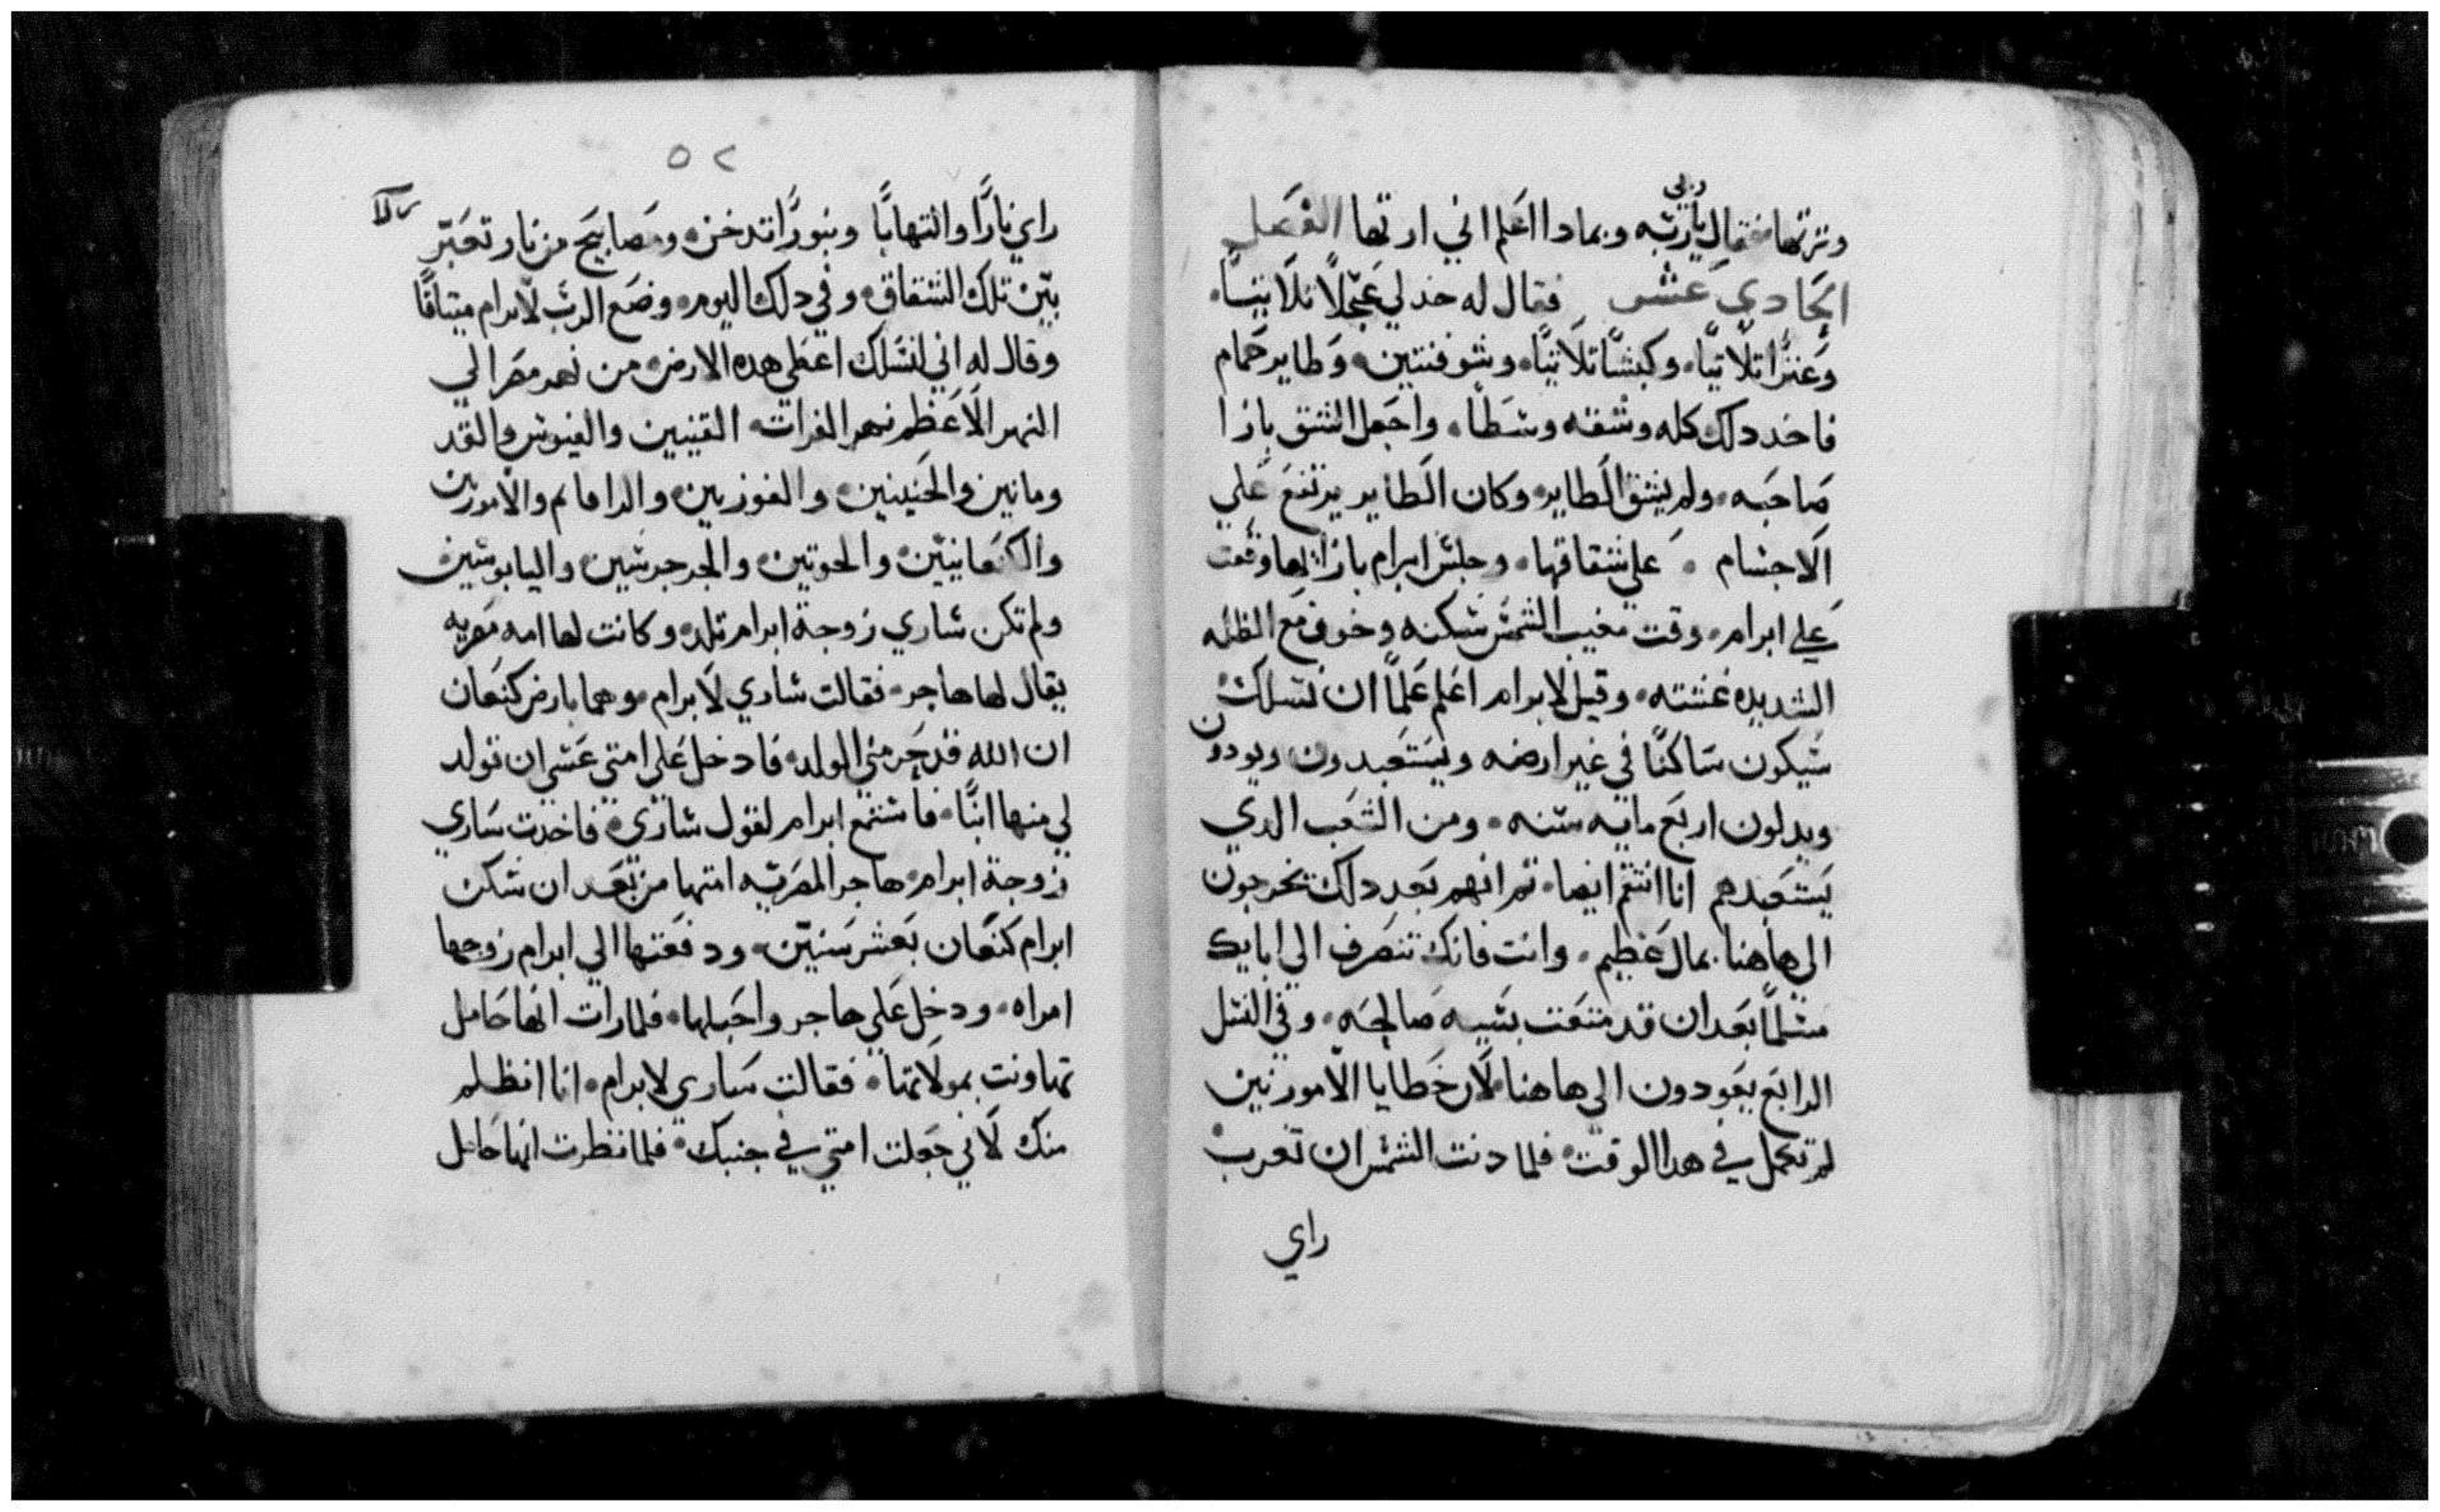 ربي
وترتها فقال يا ربه وبمادا اعلم اني ارتها الفصل
الحادي عشر فقال له خد لي عجلًا تلاتيًا
وعنزًا تلاتيًا وكبشًا تلاتيًا وشوفنتين وطاير حمام
فاخد دلك كله وشقه وسطًا واجعل الشق بازا
صاحبه ولم يشق الطاير وكان الطاير يرتفع علي
الاجسام علي شقاقها وجلس ابرام بازايها وقعت
علي ابرام وقت مغيب الشمس سكنه وخوف مع الظلمه
الشديده غشته وقيل لابرام اعلم علمًا ان نسلك
سيكون ساكنًا في غير ارضه ويستعبدون ويودون
ويدلون اربع مايه سنه ومن الشعب الدي
يستعبدهم انا انتقم ايضا تم انهم بعد دلك يخرجون
الي هاهنا بمال عظيم وانت فانك تنصرف الي ابايك
مسلمًا بعد ان قد متعت بشيبه صالحه وفي النسل
الرابع يعودون الي هاهنا لان خطايا الامورنين
لم تكمل في هدا الوقت فلما دنت الشمس ان تغرب
راي
٥٢
راي نارًا والتهابًا وبنورًا تدخن ومصابيح من نار تعبر
بين تلك الشقاق وفي دلك اليوم وضع الرب لابرام ميتاقًا
وقال له اني لنسلك اعطي هده الارض من نهر مصر الي
النهر الاعظم نهر الفرات القينين والقيوس والقد
ومانين والحيتين والفوزيين والرافايم والامورين
والكنعانيين والحوتين والجرجرسين واليابوسين
ولم تكن ساري زوجة ابرام تلد وكانت لها امه مصريه
يقال لها هاجر فقالت ساري لابرام وهما بارض كنعان
ان الله قد حرمني الولد فادخل علي امتي عسي ان تولد
لي منها ابنًا فاستمع ابرام لقول ساري فاخدت ساري
زوجة ابرام هاجر المصريه امتها من بعد ان سكن
ابرام كنعان بعشر سنين ودفعتها الي ابرام زوجها
امراه ودخل علي هاجر واحبلها فلما رات انها حامل
تهاونت بمولاتها فقالت ساري لابرام انا انظلم
منك لاني جعلت امتي في جنبك فلما نظرت انها حامل